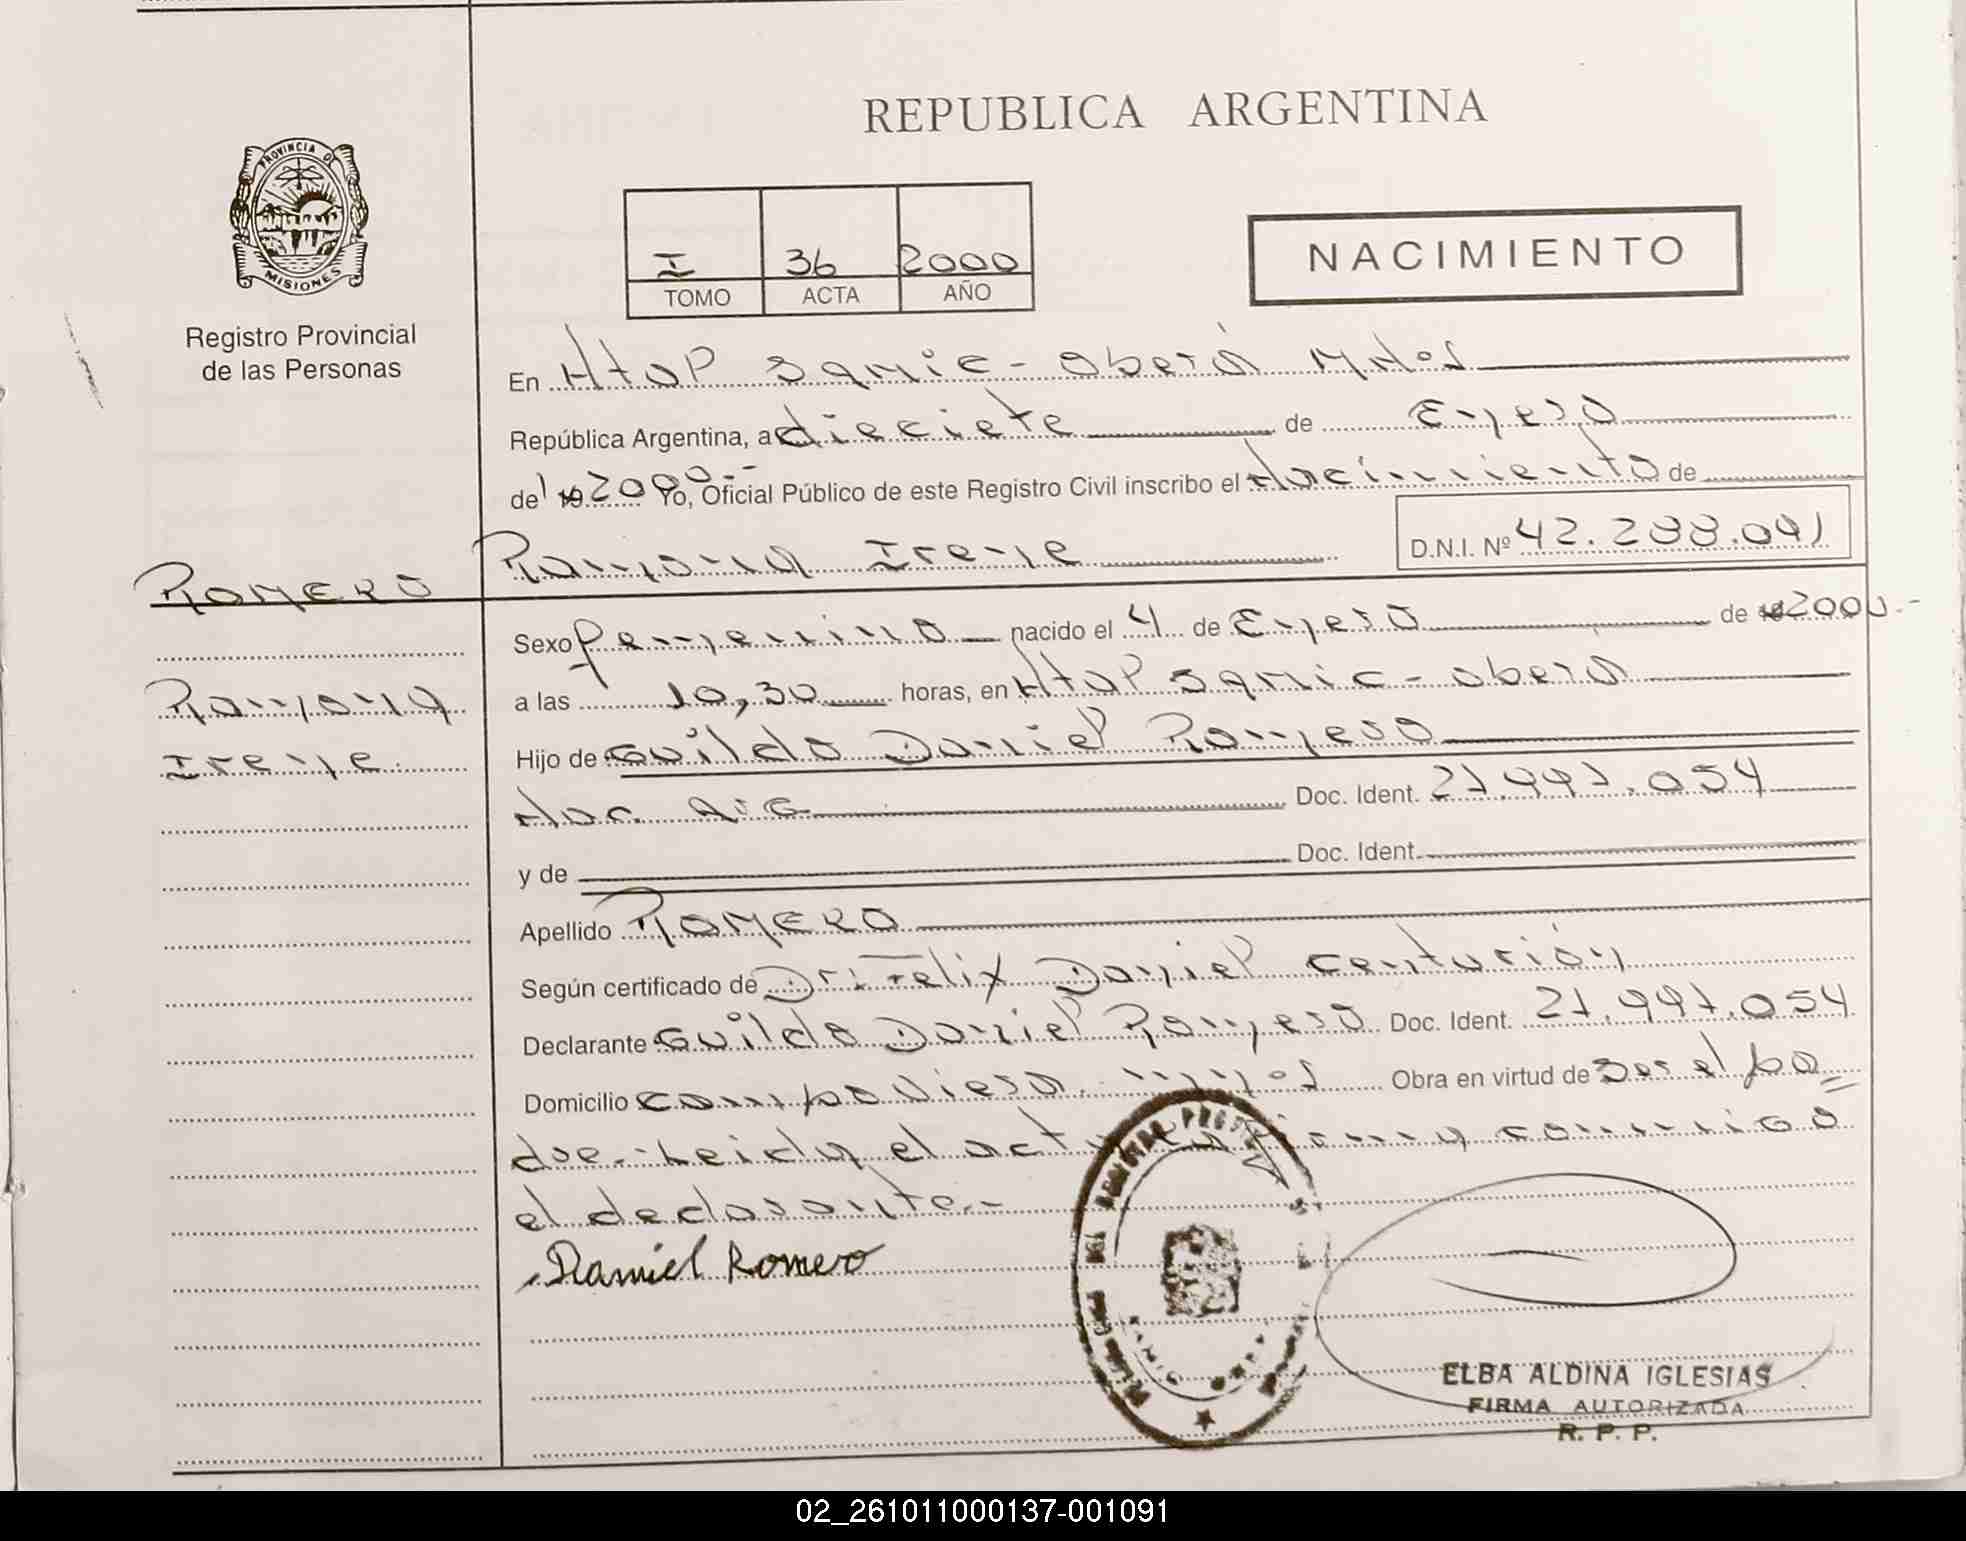 REPUBLICA ARGENTINA
PROVINCIA DE
MISIONES
Registro Provincial
de las Personas
I 36 2000
TOMO ACTA AÑO
NACIMIENTO
En Htal Samic - Oberá Mnes
República Argentina, a dieciete de Enero
del 19 2000.- Yo, Oficial Público de este Registro Civil inscribo el Nacimiento de
Ramona Irene
D.N.I. Nº 42.288.041
ROMERO
Ramona
Irene
Sexo femenino nacido el 4 de Enero de 19 2000.-
a las 10,30 horas, en Htal Samic - Oberá
Hijo de Guildo Daniel Romero
Nac. arg Doc. Ident. 21.997.054
y de Doc. Ident.
Apellido ROMERO
Según certificado de Dr: Felix Daniel Centurión
Declarante Guildo Daniel Romero Doc. Ident. 21.997.054
Domicilio Campo Viera. Mnes Obra en virtud de Ser el pa=
dre.- Leida el acta firma conmigo
el declarante.-
Daniel Romero
ELBA ALDINA IGLESIAS
FIRMA AUTORIZADA
R. P. P.
02_261011000137-001091